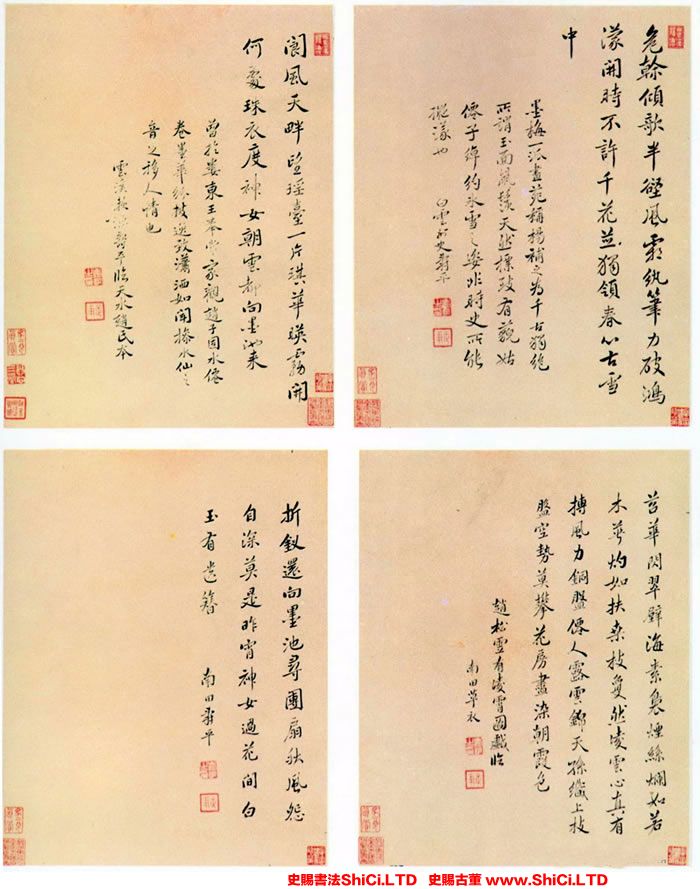 危榦傾欹半壁風霜執筆力破鴻
濛開時不許千花並獨領春心古雪
中
墨梅一派畫苑稱楊補之為千古獨絕
所謂玉面風鬟天然標致有藐姑
僊子綽約冰雪之姿非時史所能
擬議也 白雲外史壽平
閬風天畔望瑤臺一片淇華暎霧開
何處珠衣度神女朝雲都向墨池來
曾於婁東王奉常家觀趙子固水僊
卷葉華紛披逸致瀟洒如聞操水仙之
音之移人情也
雲溪 壽平臨天水趙氏本
苕華閃翠壁海素裊煙絲爛如若
木華灼如扶桑枝夐然凌雲心真有
摶風力銅盤僊人露雲錦天孫織上枝
盤空勢莫攀花房盡染朝霞色
趙松雪有凌霄圖戲臨
南田草衣
折釵還向墨池尋團扇秋風怨
自深莫是昨宵神女過花間白
玉有遺簪
南田壽平
史賜書法ShiCi.LTD 史賜古董 www.ShiCi.LTD